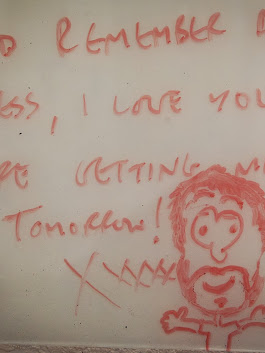 D REMEMBER
ESS, I LOVE YOU
RE GETTING M
TOMORROW!
XXXXX